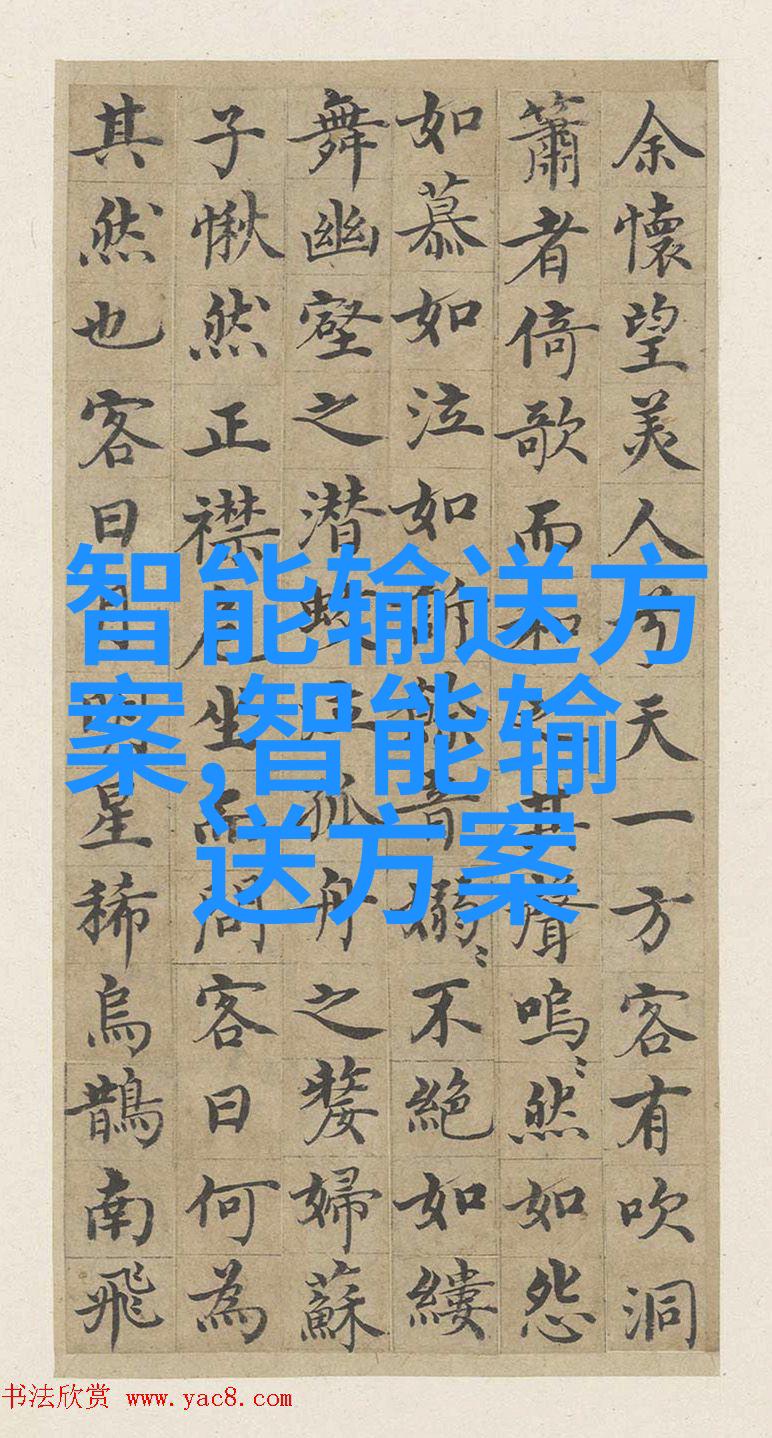 余懷望美人兮天一方客有吹洞
簫者倚歌而和之其聲嗚〻然如怨
如慕如泣如訴餘音嫋〻不絕如縷
舞幽壑之潜蛟泣孤舟之嫠婦蘇
子愀然正襟危坐而問客曰何為
其然也客曰月明星稀烏鵲南飛
智能输送方
案,智能输
送方案
书法欣赏 www.yac8.com